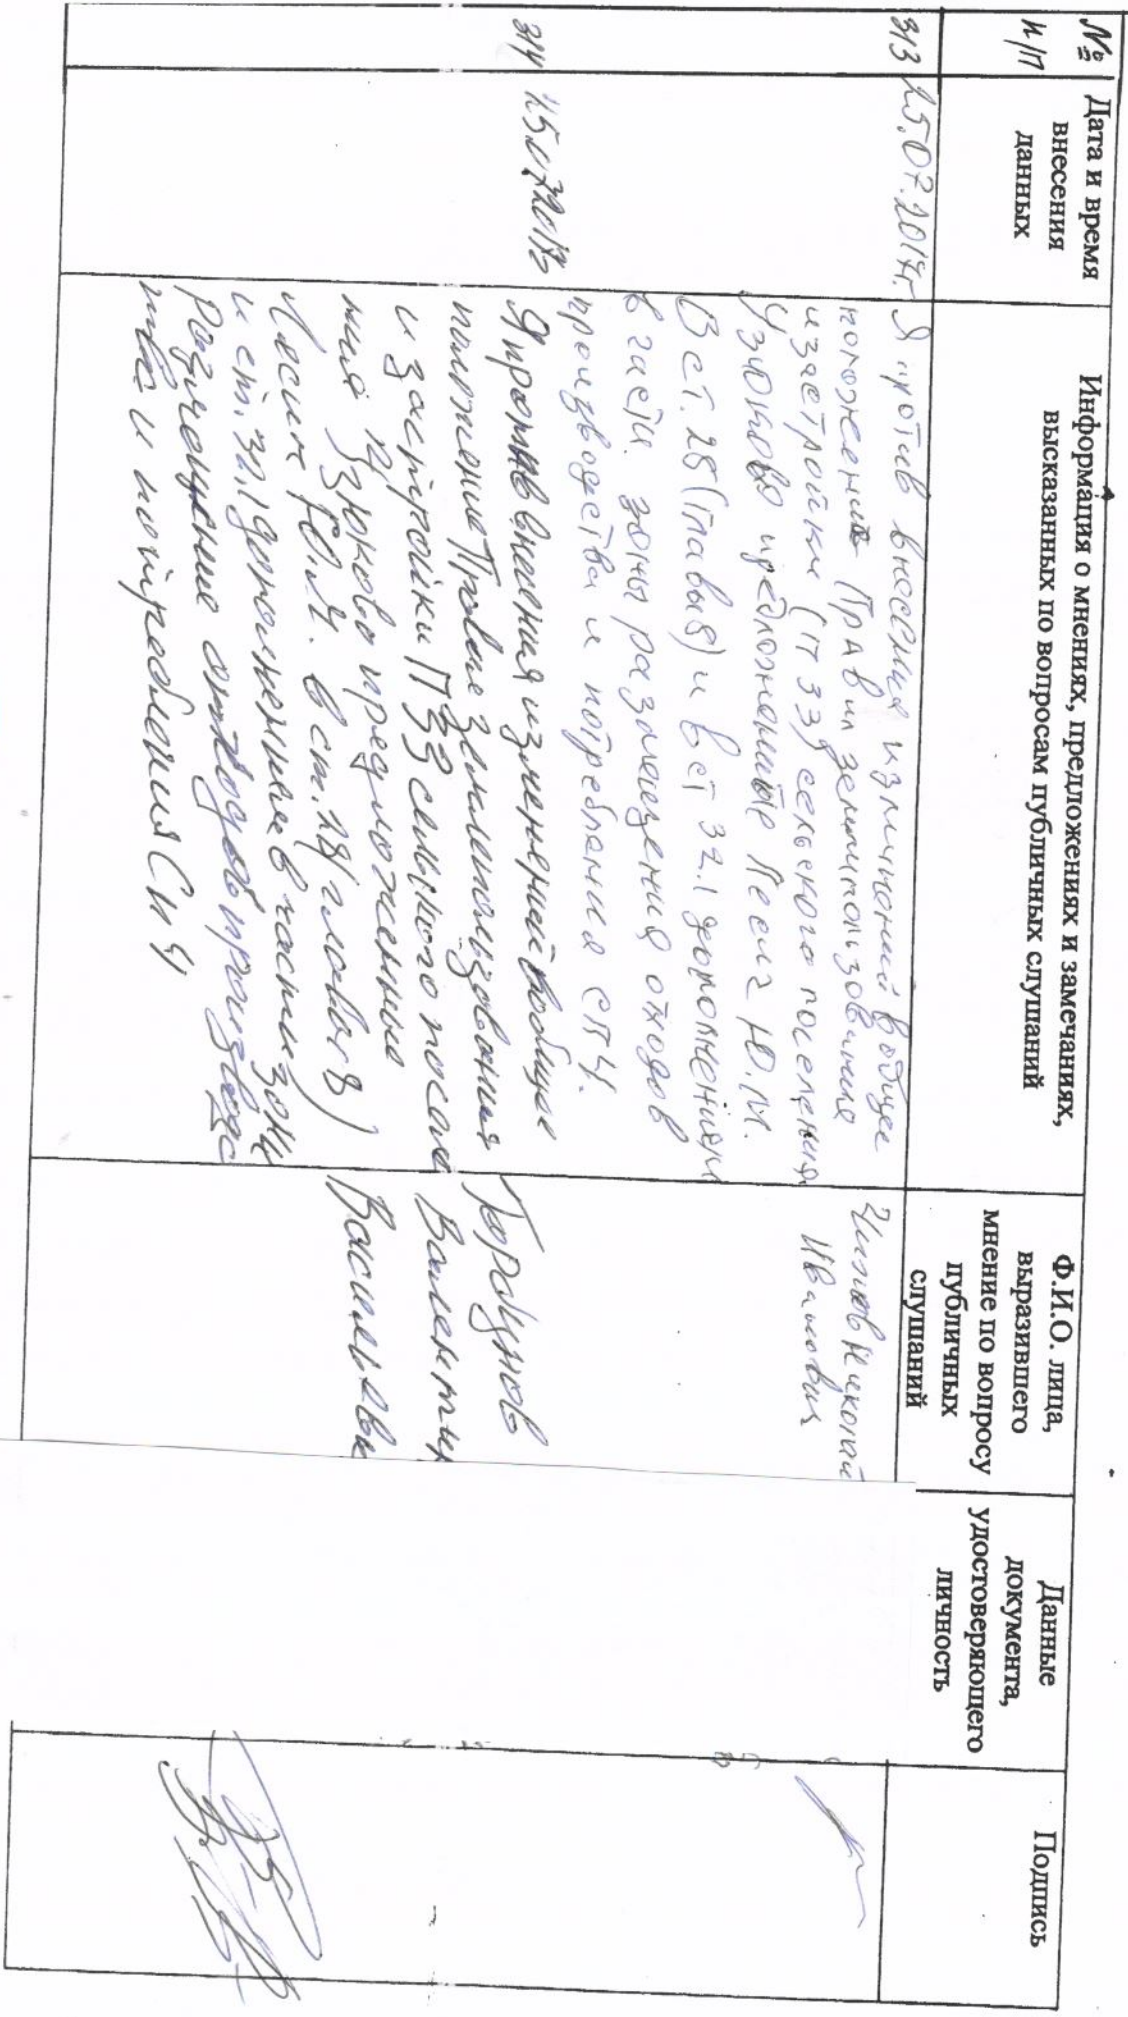 №
п/п
Дата и время
внесения
данных
Информация о мнениях, предложениях и замечаниях,
высказанных по вопросам публичных слушаний
Ф.И.О. лица,
выразившего
мнение по вопросу
публичных
слушаний
Данные
документа,
удостоверяющего
личность
Подпись
313
25.07.2017г.
Я против внесения изменений вообще
положения Правил землепользования
и застройки (ПЗЗ) сельского поселения
Узюково предложенные Песиг Ю.М.
В ст. 28 (глава 8) и в ст 32.1 дополнением
в части зоны размещения отходов
производства и потребления СП 4.
Николай
Иванович
314
25.07.2017г
Я против внесения изменений вообще
положение Правил землепользования
и застройки ПЗЗ сельского поселе
ния Узюково предложенные
Ю.М. в ст. 28 (глава 8)
и ст. 32.1 дополнение в части зоны
Размещение отходов производс
тва и потребления СП 4
Горбунов
Валентин
Васильевич